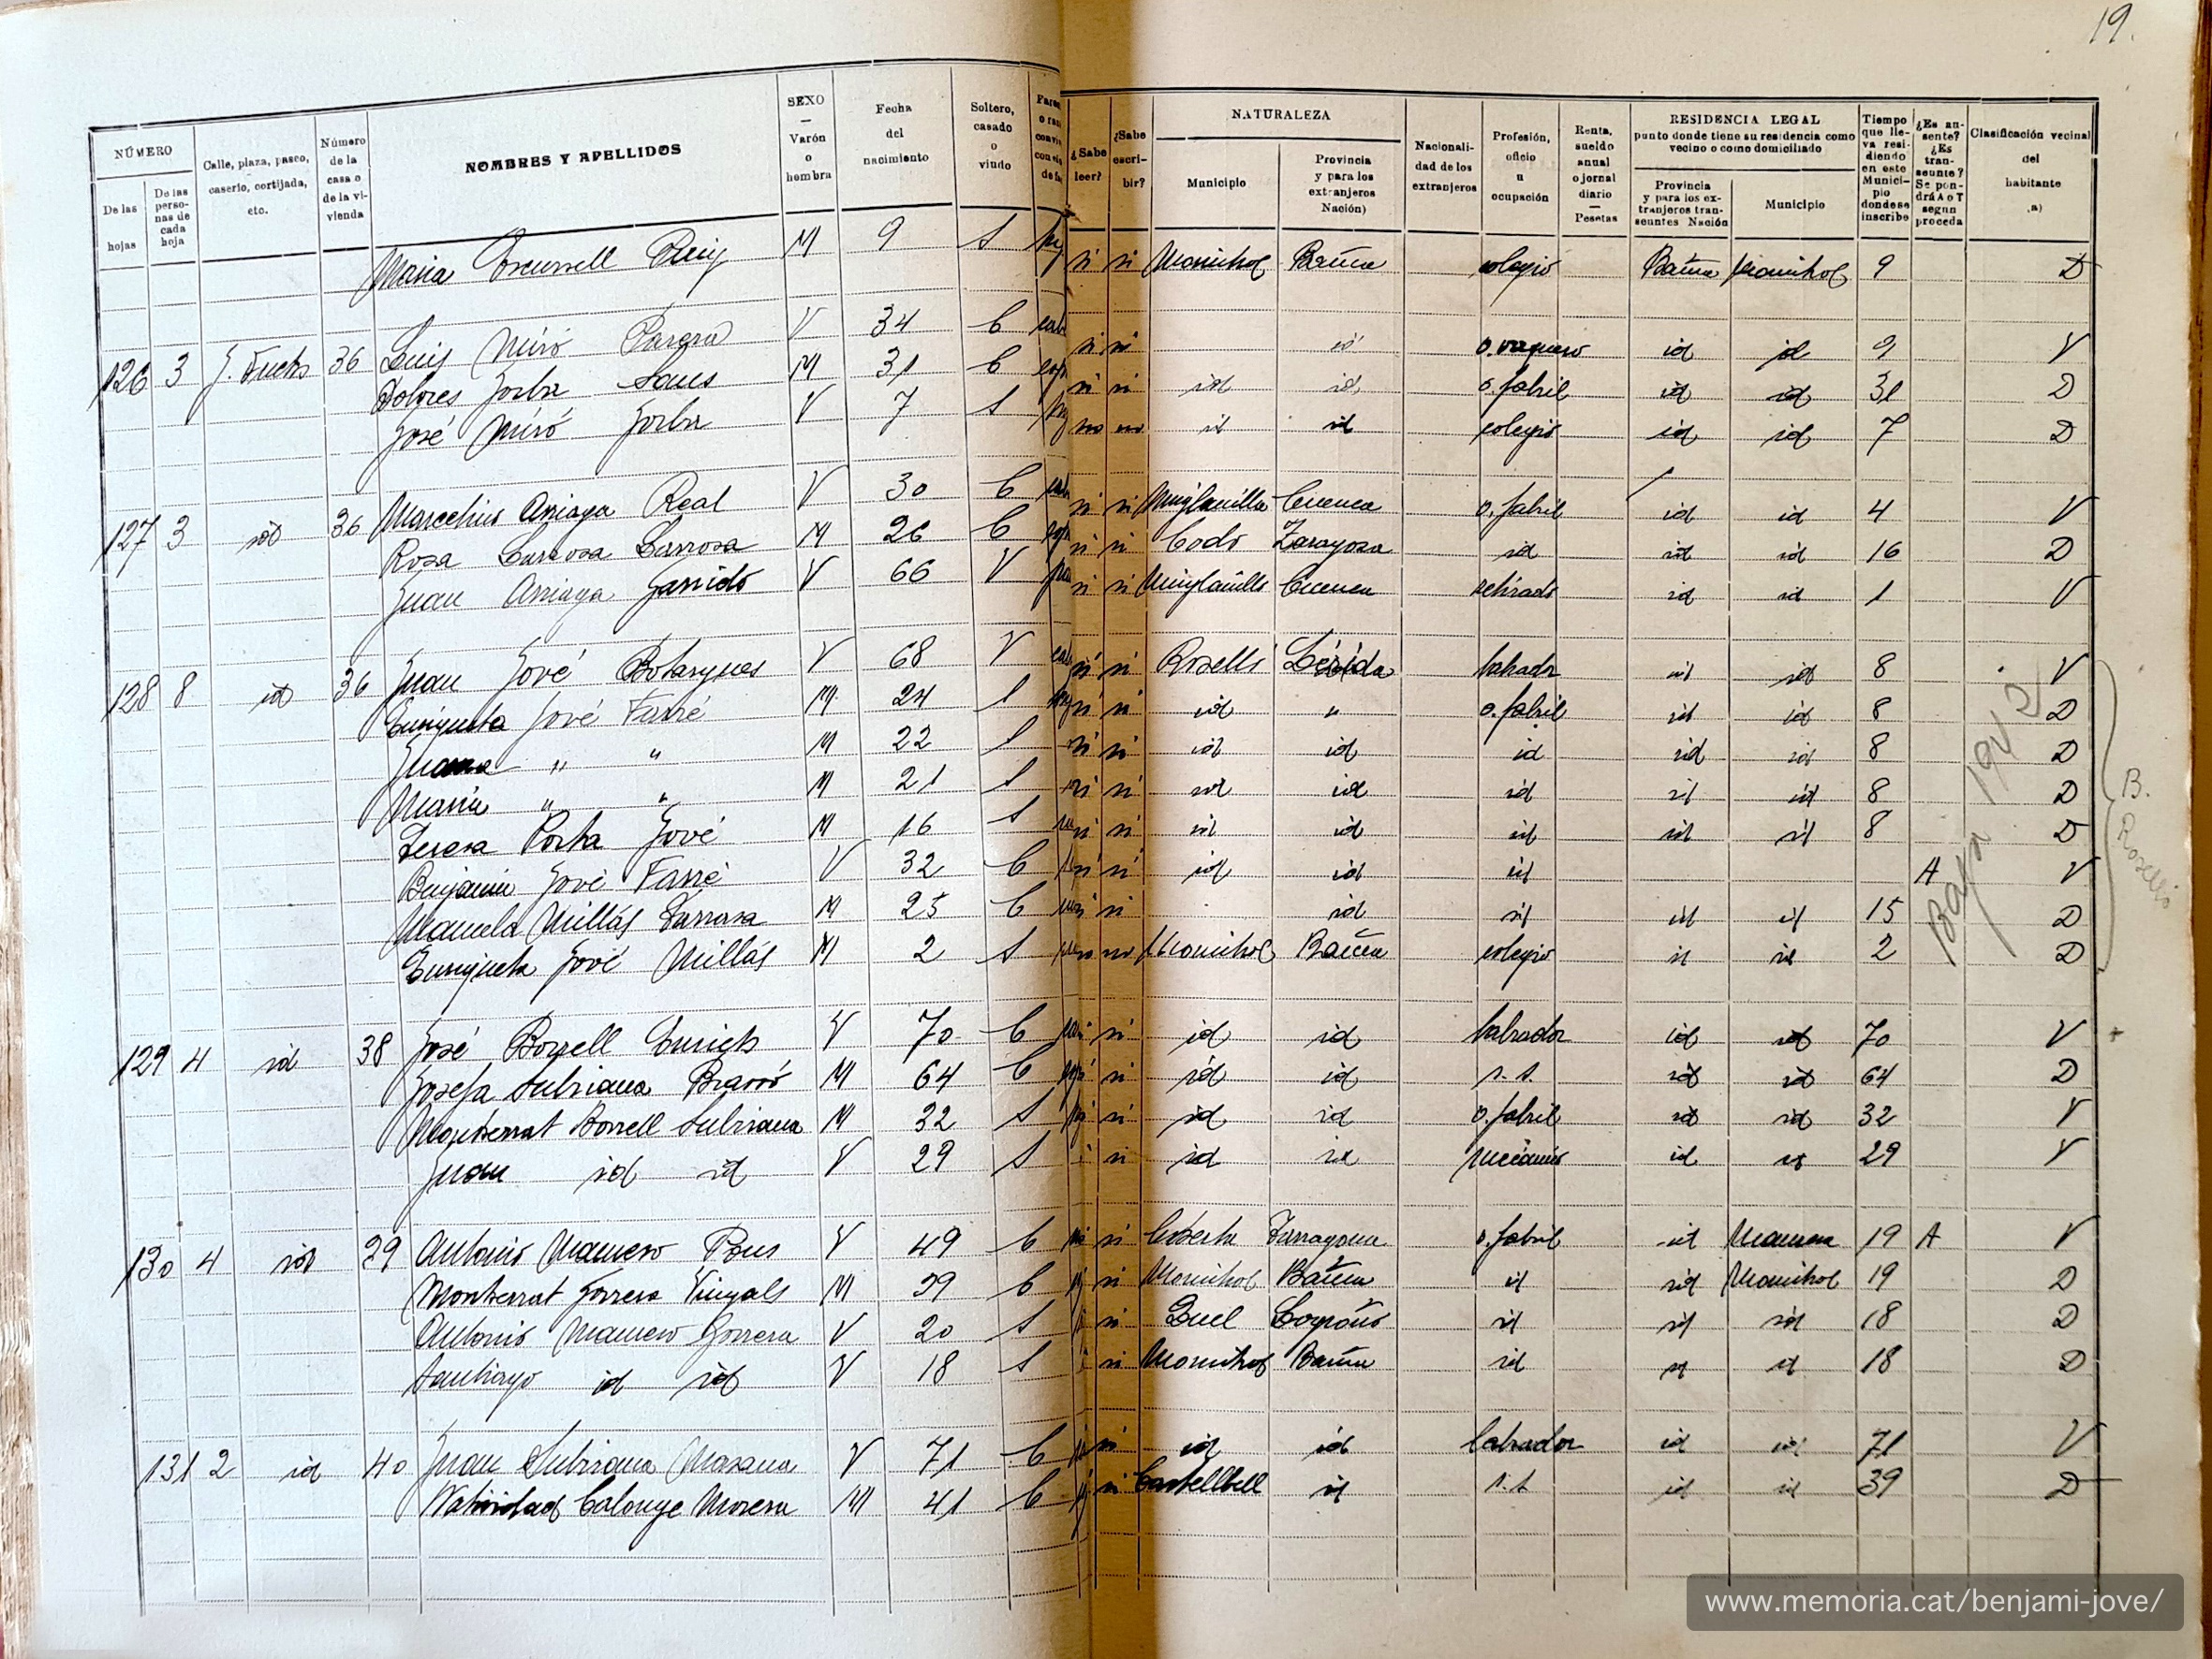 19.
NÚMERO
De las hojas
De las personas de cada hoja
Calle, plaza, paseo, caserío, cortijada, etc.
Número de la casa o de la vivienda
NOMBRES Y APELLIDOS
SEXO — Varón o hembra
Fecha del nacimiento
Soltero, casado o viudo
¿Sabe leer?
¿Sabe escribir?
NATURALEZA
Municipio
Provincia y para los extranjeros Nación)
Nacionalidad de los extranjeros
Profesión, oficio u ocupación
Renta, sueldo anual o jornal diario — Pesetas
RESIDENCIA LEGAL
punto donde tiene su residencia como vecino o como domiciliado
Provincia y para los extranjeros transeuntes Nación
Municipio
Tiempo que lleva residiendo en este Municipio donde se inscribe
¿Es ausente? ¿Es transeunte? Se pondrá A o T segun proceda
Clasificación vecinal del habitante (a)
Maria Escursell Puig M 9 S si si Monistrol Barna colegio Barna Monistrol 9 D
126 3 36 Luis Miró Parera V 34 C si si id id id 9 V
Dolores Jorba Sans M 31 C si si id id o. fabril id id 31 D
José Miró Jorba V 7 S no no id id colegio id id 7 D
127 3 id 36 Marcelino Arriaga Real V 30 C si si Minglanilla Cuenca o. fabril id id 4 V
Rosa Larrosa Larrosa M 26 C si si Codo Zaragoza id id id 16 D
Juan Arriaga Garrido V 66 V si si Minglanilla Cuenca retirado id id 1 V
128 8 id 36 Juan Jové Botargues V 68 V si si Roselló Lérida labrador id id 8 V
Enriqueta Jové Farré M 24 S si si id " o. fabril id id 8 D
Juana " " M 22 S si si id id id id id 8 D
Maria " " M 21 S si si id id id id id 8 D
Teresa Porta Jové M 16 S si si id id id id id 8 D
Benjamin Jové Farré V 32 C si si id id id A V
Manuela Millás Larrosa M 25 C si si id id id id 15 D
Enriqueta Jové Millás M 2 S no no Monistrol Barna colegio id id 2 D
Baja 1942
B. Roselló
129 4 id 38 José Borrell Enrich V 70 C si id id labrador id id 70 V
Josefa Subirana Brassó M 64 C si id id s. s. id id 64 D
Montserrat Borrell Subirana M 32 S si id id o. fabril id id 32 V
Juan id id V 29 S si id id id id 29 V
130 4 id 29 Antonio Manero Pons V 49 C si Tarragona o. fabril id Manresa 19 A V
Montserrat Torrera Vinyals M 39 C si Monistrol Barna id id Monistrol 19 D
Antonio Manero Torrera V 20 S si Logroño id id id 18 D
Santiago id id V 18 S si Monistrol Barna id id id 18 D
131 2 id 40 Juan Subirana Masana V 71 C si id id labrador id id 71 V
Natividad Calonge Morera M 41 C si Castellbell id s. s. id id 39 D
www.memoria.cat/benjami-jove/